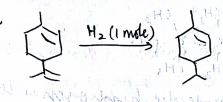 H₂ (1 mole)